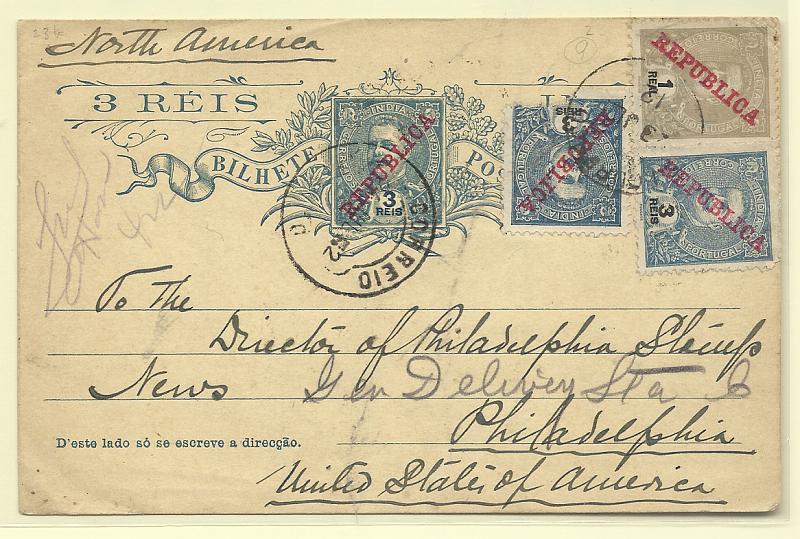 North America
3 RÉIS
BILHETE POS
INDIA
CORREIO
REPUBLICA
3
REIS
INDIA
REPUBLICA
3
REIS
REPUBLICA
1
REAL
INDIA
CORREIO
PORTUGAL
REPUBLICA
3
REIS
CORREIO
PORTUGAL
CORREIO
To the
Director of Philadelphia Stamps
News Gen Delivery Sta
Philadelphia
D'este lado só se escreve a direcção.
United States of America